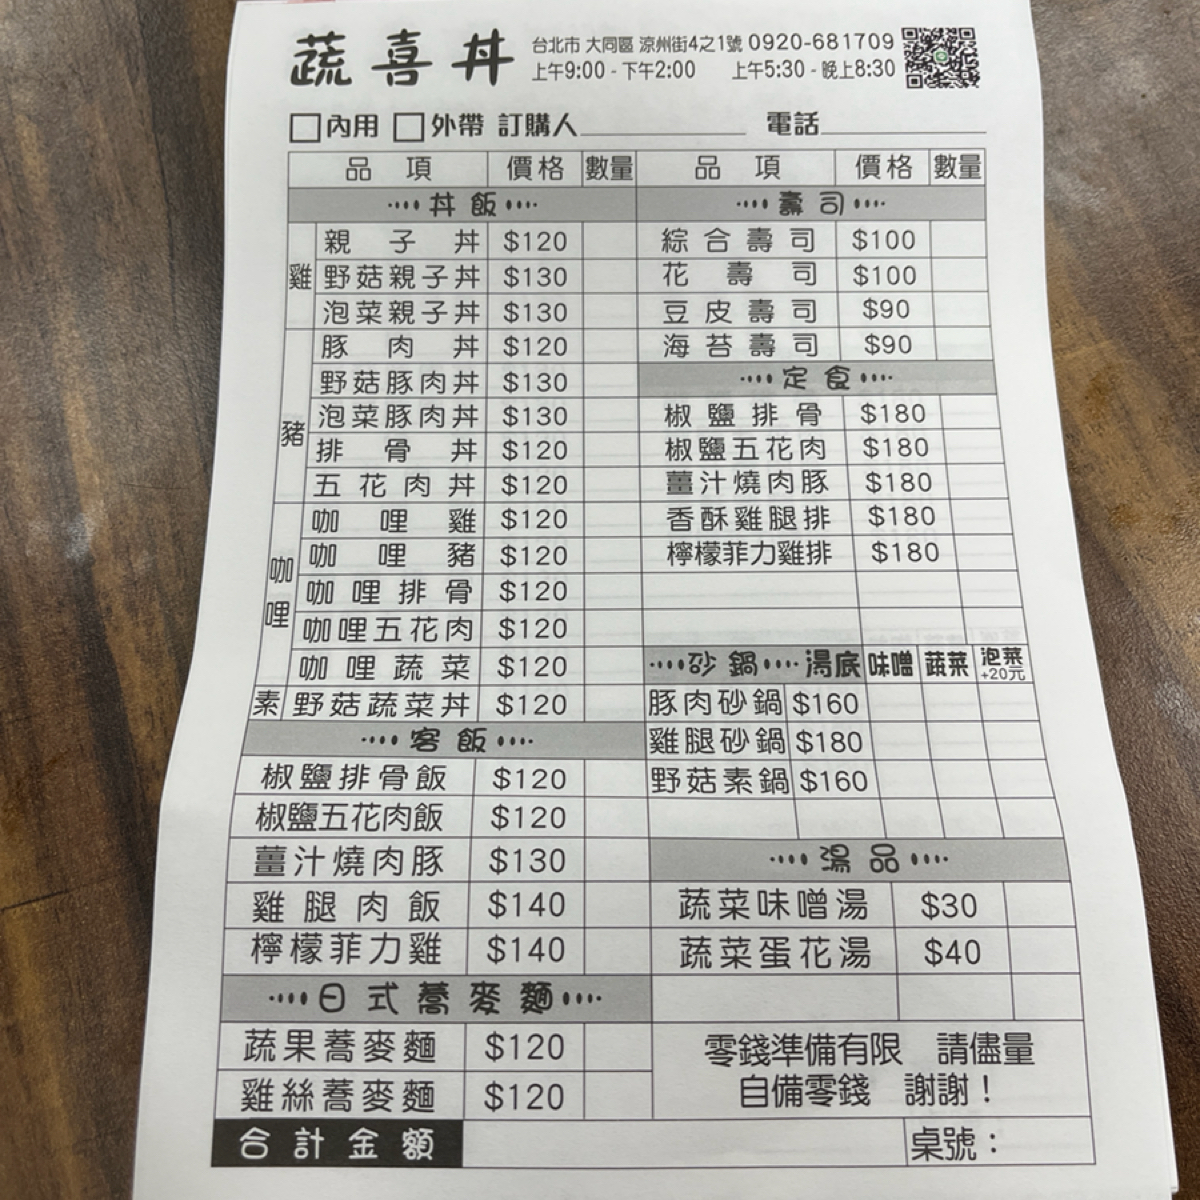 蔬喜丼
台北市 大同區 涼州街4之1號 0920-681709
上午9:00 - 下午2:00 上午5:30 - 晚上8:30
內用 外帶 訂購人 電話
品項 價格 數量
丼飯
雞
親子丼 $120
野菇親子丼 $130
泡菜親子丼 $130
豬
豚肉丼 $120
野菇豚肉丼 $130
泡菜豚肉丼 $130
排骨丼 $120
五花肉丼 $120
咖哩
咖哩雞 $120
咖哩豬 $120
咖哩排骨 $120
咖哩五花肉 $120
咖哩蔬菜 $120
素 野菇蔬菜丼 $120
客飯
椒鹽排骨飯 $120
椒鹽五花肉飯 $120
薑汁燒肉豚 $130
雞腿肉飯 $140
檸檬菲力雞 $140
日式蕎麥麵
蔬果蕎麥麵 $120
雞絲蕎麥麵 $120
品項 價格 數量
壽司
綜合壽司 $100
花壽司 $100
豆皮壽司 $90
海苔壽司 $90
定食
椒鹽排骨 $180
椒鹽五花肉 $180
薑汁燒肉豚 $180
香酥雞腿排 $180
檸檬菲力雞排 $180
砂鍋 湯底 味噌 蔬菜 泡菜
+20元
豚肉砂鍋 $160
雞腿砂鍋 $180
野菇素鍋 $160
湯品
蔬菜味噌湯 $30
蔬菜蛋花湯 $40
零錢準備有限 請儘量
自備零錢 謝謝！
合計金額 桌號：